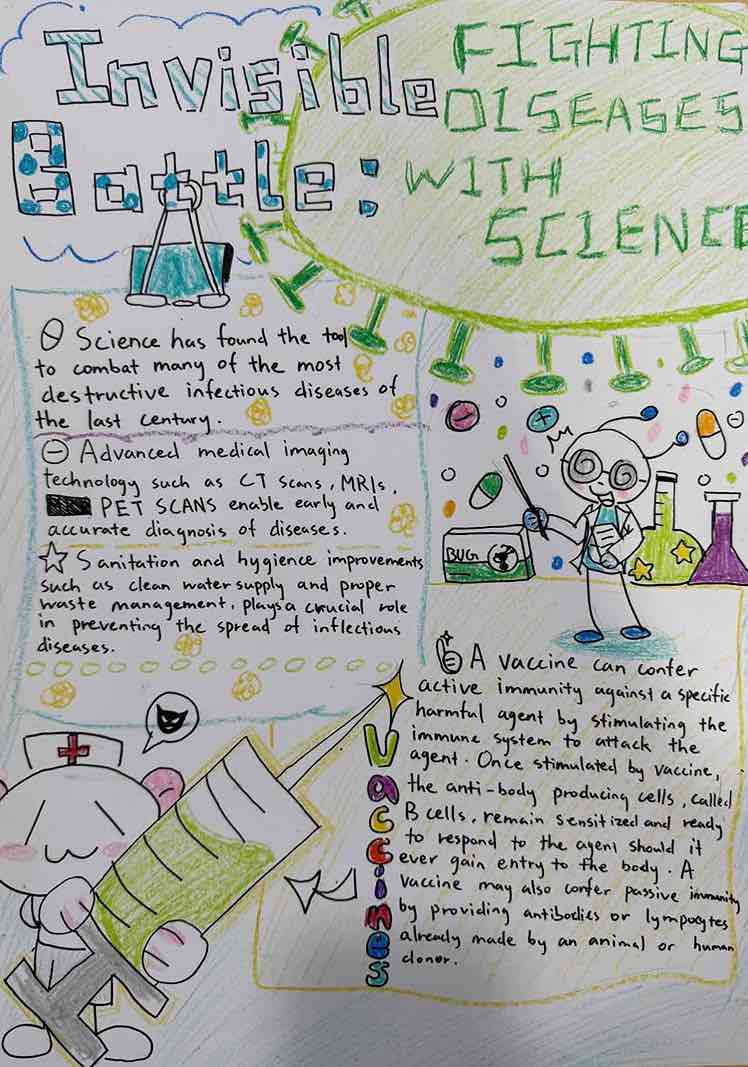 Invisible
Battle:
FIGHTING
DISEASES
WITH
SCIENCE
Science has found the tool
to combat many of the most
destructive infectious diseases of
the last century.
Advanced medical imaging
technology such as CT scans, MRIs,
PET SCANS enable early and
accurate diagnosis of diseases.
Sanitation and hygience improvements
such as clean water supply and proper
waste management, plays a crucial role
in preventing the spread of inflectious
diseases.
BUG
Vaccines
A vaccine can confer
active immunity against a specific
harmful agent by stimulating the
immune system to attack the
agent. Once stimulated by vaccine,
the anti-body producing cells, called
B cells, remain sensitized and ready
to respond to the agent should it
ever gain entry to the body. A
vaccine may also confer passive immunity
by providing antibodies or lympocytes
already made by an animal or human
donor.